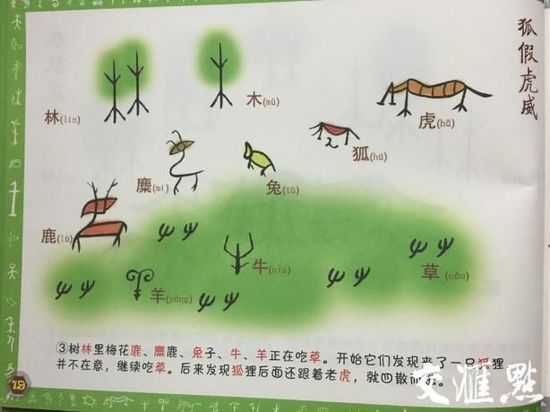 狐假虎威
林(lín)
木(mù)
虎(hǔ)
狐(hú)
麋(mí)
兔(tù)
鹿(lù)
牛(niú)
草(cǎo)
羊(yáng)
③树林里梅花鹿、麋鹿、兔子、牛、羊正在吃草。开始它们发现来了一只狐狸
并不在意，继续吃草。后来发现狐狸后面还跟着老虎，就四散而
19
交滙點